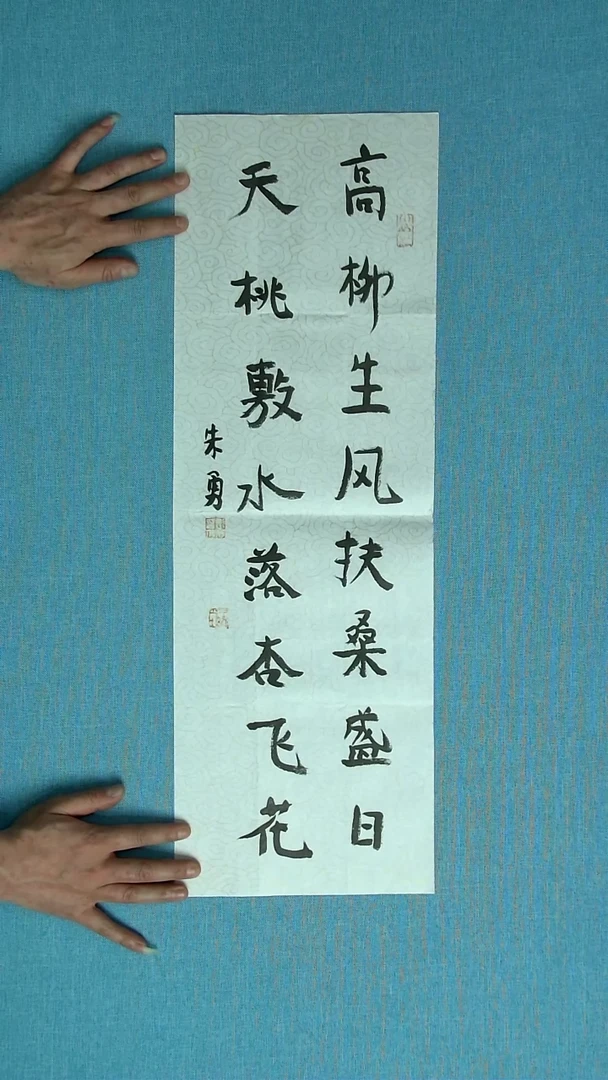 高柳生风扶桑盛日
天桃敷水落杏飞花
朱勇